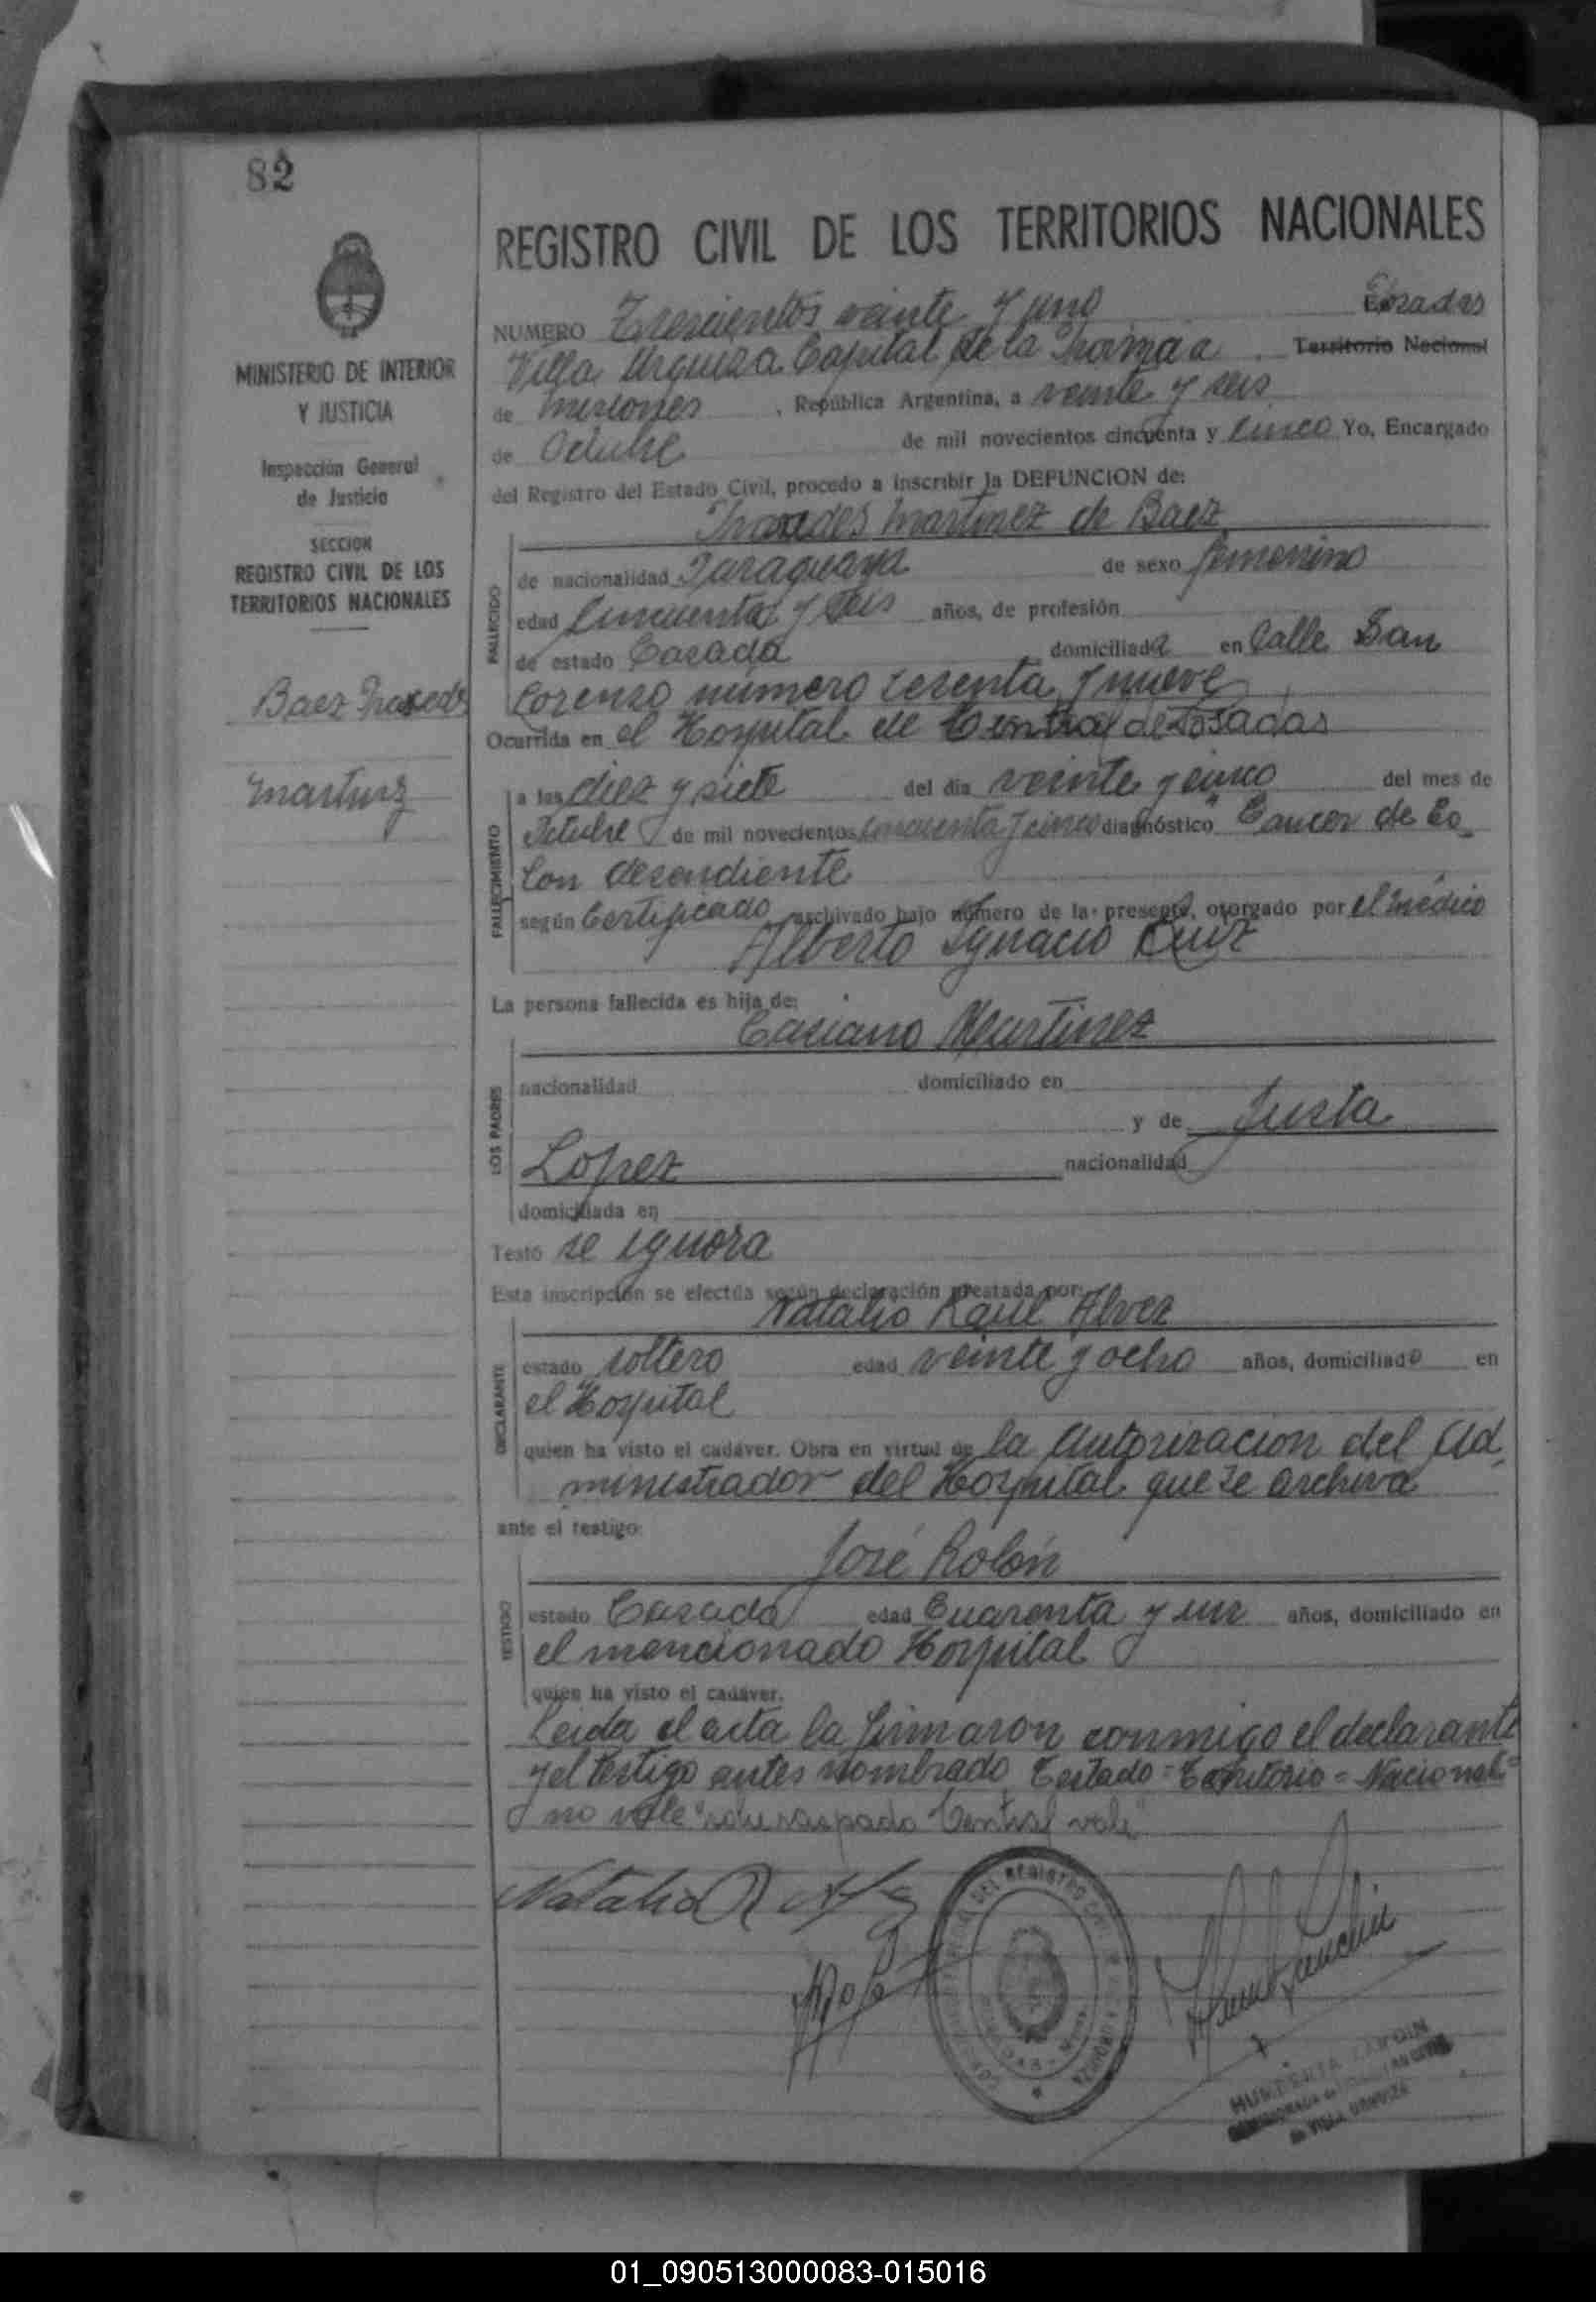 82
REGISTRO CIVIL DE LOS TERRITORIOS NACIONALES
MINISTERIO DE INTERIOR
Y JUSTICIA
Inspección General
de Justicia
SECCION
REGISTRO CIVIL DE LOS
TERRITORIOS NACIONALES
Baez Praxedes
Martinez
NUMERO Trescientos veinte y uno Posadas
Villa Urquiza Capital de la Territorio Nacional
de Misiones, República Argentina, a veinte y seis
de Octubre de mil novecientos cincuenta y cinco Yo, Encargado
del Registro del Estado Civil, procedo a inscribir la DEFUNCION de:
Praxedes Martinez de Baez
FALLECIDO
de nacionalidad Paraguaya de sexo femenino
edad Cincuenta y seis años, de profesión
de estado Casada domiciliada en Calle San
Lorenzo número sesenta y nueve
Ocurrida en el Hospital de Central de Posadas
FALLECIMIENTO
a las diez y siete del día veinte y cinco del mes de
Octubre de mil novecientos cincuenta y cinco diagnóstico Cancer de Co-
lon desendiente
según Certificado archivado bajo número de la presente, otorgado por el médico
Alberto Ignacio Ruiz
La persona fallecida es hija de:
Casiano Martinez
LOS PADRES
nacionalidad domiciliado en
y de Justa
Lopez nacionalidad
domiciliada en
Testó se ignora
Esta inscripción se efectúa según declaración prestada por:
Natalio Raul Alvez
DECLARANTE
estado soltero edad veinte y ocho años, domiciliado en
el Hospital
quien ha visto el cadáver. Obra en virtud de la autorizacion del Ad
ministrador del Hospital que se archiva
ante el testigo:
José Rolón
TESTIGO
estado Casado edad Cuarenta y un años, domiciliado en
el mencionado Hospital
quien ha visto el cadáver.
Leida el acta la firmaron conmigo el declarante
y el testigo antes nombrado Testado = Territorio = Nacional =
no vale "sobre raspado Central vale"
Natalio R
DEL REGISTRO CIVIL
de VILLA URQUIZA
01_090513000083-015016